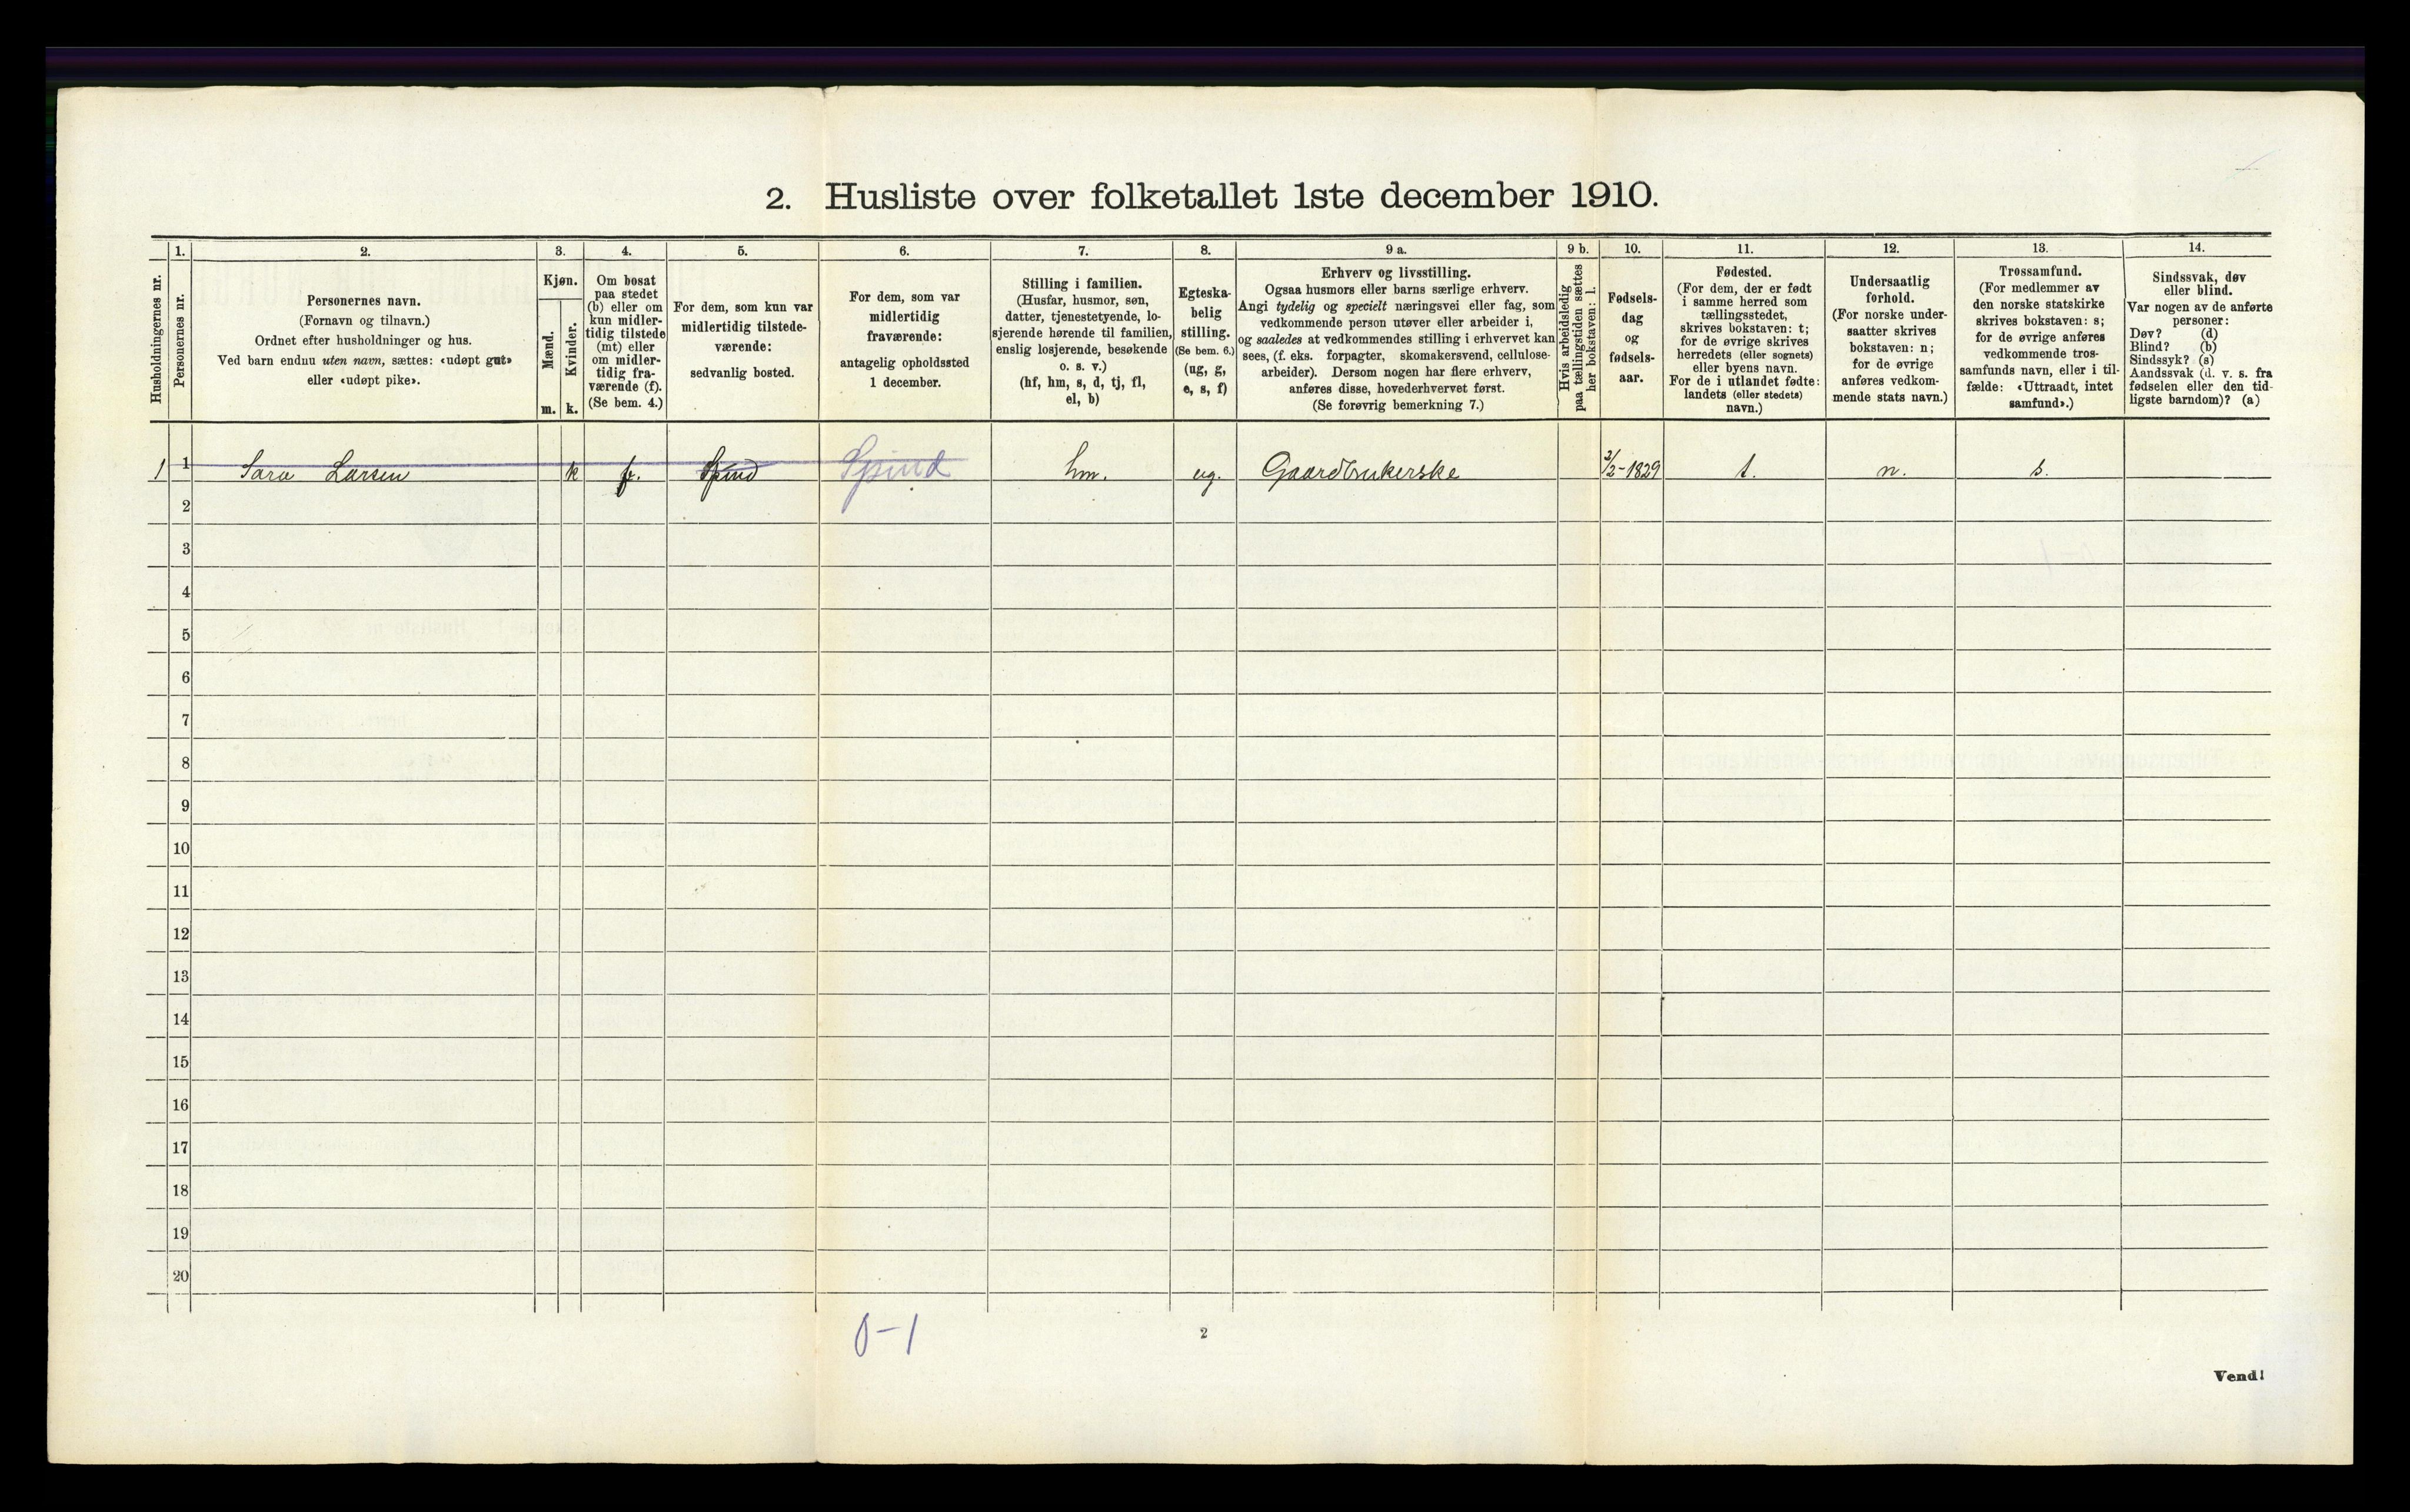 2. Husliste over folketallet 1ste december 1910.
Husholdningernes nr.
1.
Personernes nr.
2.
Personernes navn.
(Fornavn og tilnavn.)
Ordnet efter husholdninger og hus.
Ved barn endnu uten navn, sættes: «udøpt gut»
eller «udøpt pike».
3.
Kjøn.
Mænd.
m.
Kvinder.
k.
4.
Om bosat
paa stedet
(b) eller om
kun midler-
tidig tilstede
(mt) eller
om midler-
tidig fra-
værende (f).
(Se bem. 4.)
5.
For dem, som kun var
midlertidig tilstede-
værende:
sedvanlig bosted.
6.
For dem, som var
midlertidig
fraværende:
antagelig opholdssted
1 december.
7.
Stilling i familien.
(Husfar, husmor, søn,
datter, tjenestetyende, lo-
sjerende hørende til familien,
enslig losjerende, besøkende
o. s. v.)
(hf, hm, s, d, tj, fl,
el, b)
8.
Egteska-
belig
stilling.
(Se bem. 6.)
(ug, g,
e, s, f)
9 a.
Erhverv og livsstilling.
Ogsaa husmors eller barns særlige erhverv.
Angi tydelig og specielt næringsvei eller fag, som
vedkommende person utøver eller arbeider i,
og saaledes at vedkommendes stilling i erhvervet kan
sees, (f. eks. forpagter, skomakersvend, cellulose-
arbeider). Dersom nogen har flere erhverv,
anføres disse, hovederhvervet først.
(Se forøvrig bemerkning 7.)
9 b.
Hvis arbeidsledig
paa tællingstiden sættes
her bokstaven: l.
10.
Fødsels-
dag
og
fødsels-
aar.
11.
Fødested.
(For dem, der er født
i samme herred som
tællingsstedet,
skrives bokstaven: t;
for de øvrige skrives
herredets (eller sognets)
eller byens navn.
For de i utlandet fødte:
landets (eller stedets)
navn.)
12.
Undersaatlig
forhold.
(For norske under-
saatter skrives
bokstaven: n;
for de øvrige
anføres vedkom-
mende stats navn.)
13.
Trossamfund.
(For medlemmer av
den norske statskirke
skrives bokstaven: s;
for de øvrige anføres
vedkommende tros-
samfunds navn, eller i til-
fælde: «Uttraadt, intet
samfund».)
14.
Sindssvak, døv
eller blind.
Var nogen av de anførte
personer:
Døv? (d)
Blind? (b)
Sindssyk? (s)
Aandssvak (d. v. s. fra
fødselen eller den tid-
ligste barndom)? (a)
1 1 Sara Larsen k f. Spind Spind hm. ug. Gaardbrukerske 2/2-1829 t. n. s.
2
3
4
5
6
7
8
9
10
11
12
13
14
15
16
17
18
19
20
0-1
2
Vend!